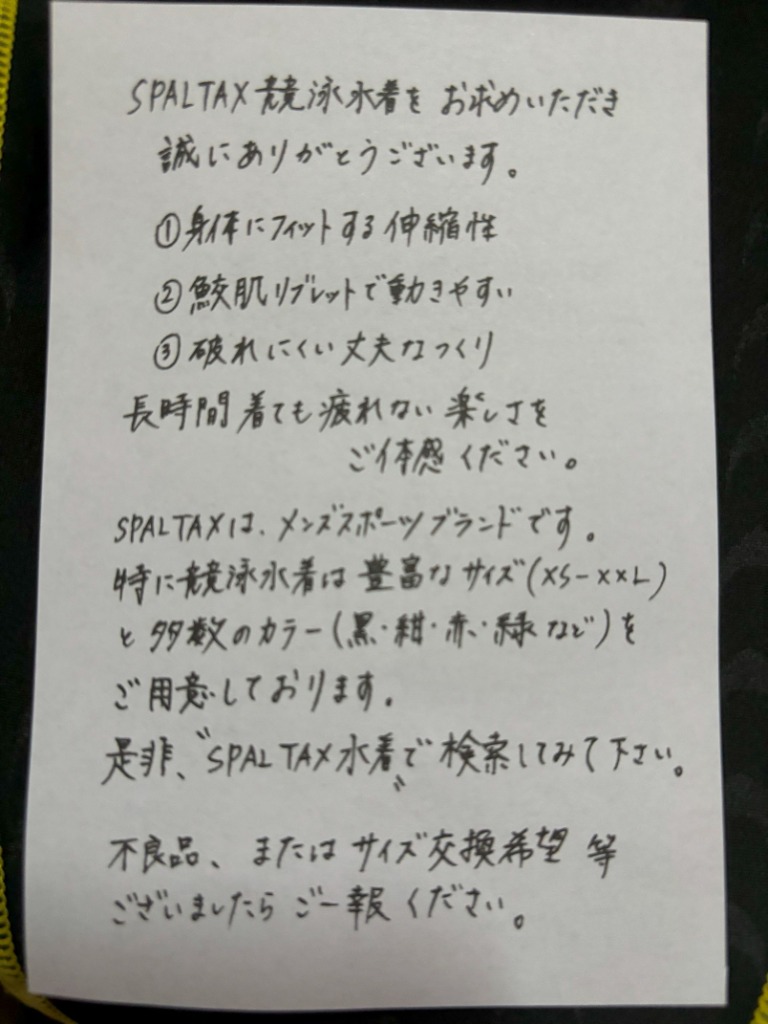 SPALTAX競泳水着を お求めいただき
誠にありがとうございます。
①身体にフィットする伸縮性
②鮫肌リブレットで動きやすい
③破れにくい丈夫なつくり
長時間着ても疲れない楽しさを
ご体感ください。
SPALTAXは、メンズスポーツブランドです。
特に競泳水着は豊富なサイズ(XS-XXL)
と多数のカラー(黒・紺・赤・緑など)を
ご用意しております。
是非、〝SPALTAX水着〟で検索してみて下さい。
不良品、またはサイズ交換希望等
ございましたらご一報ください。